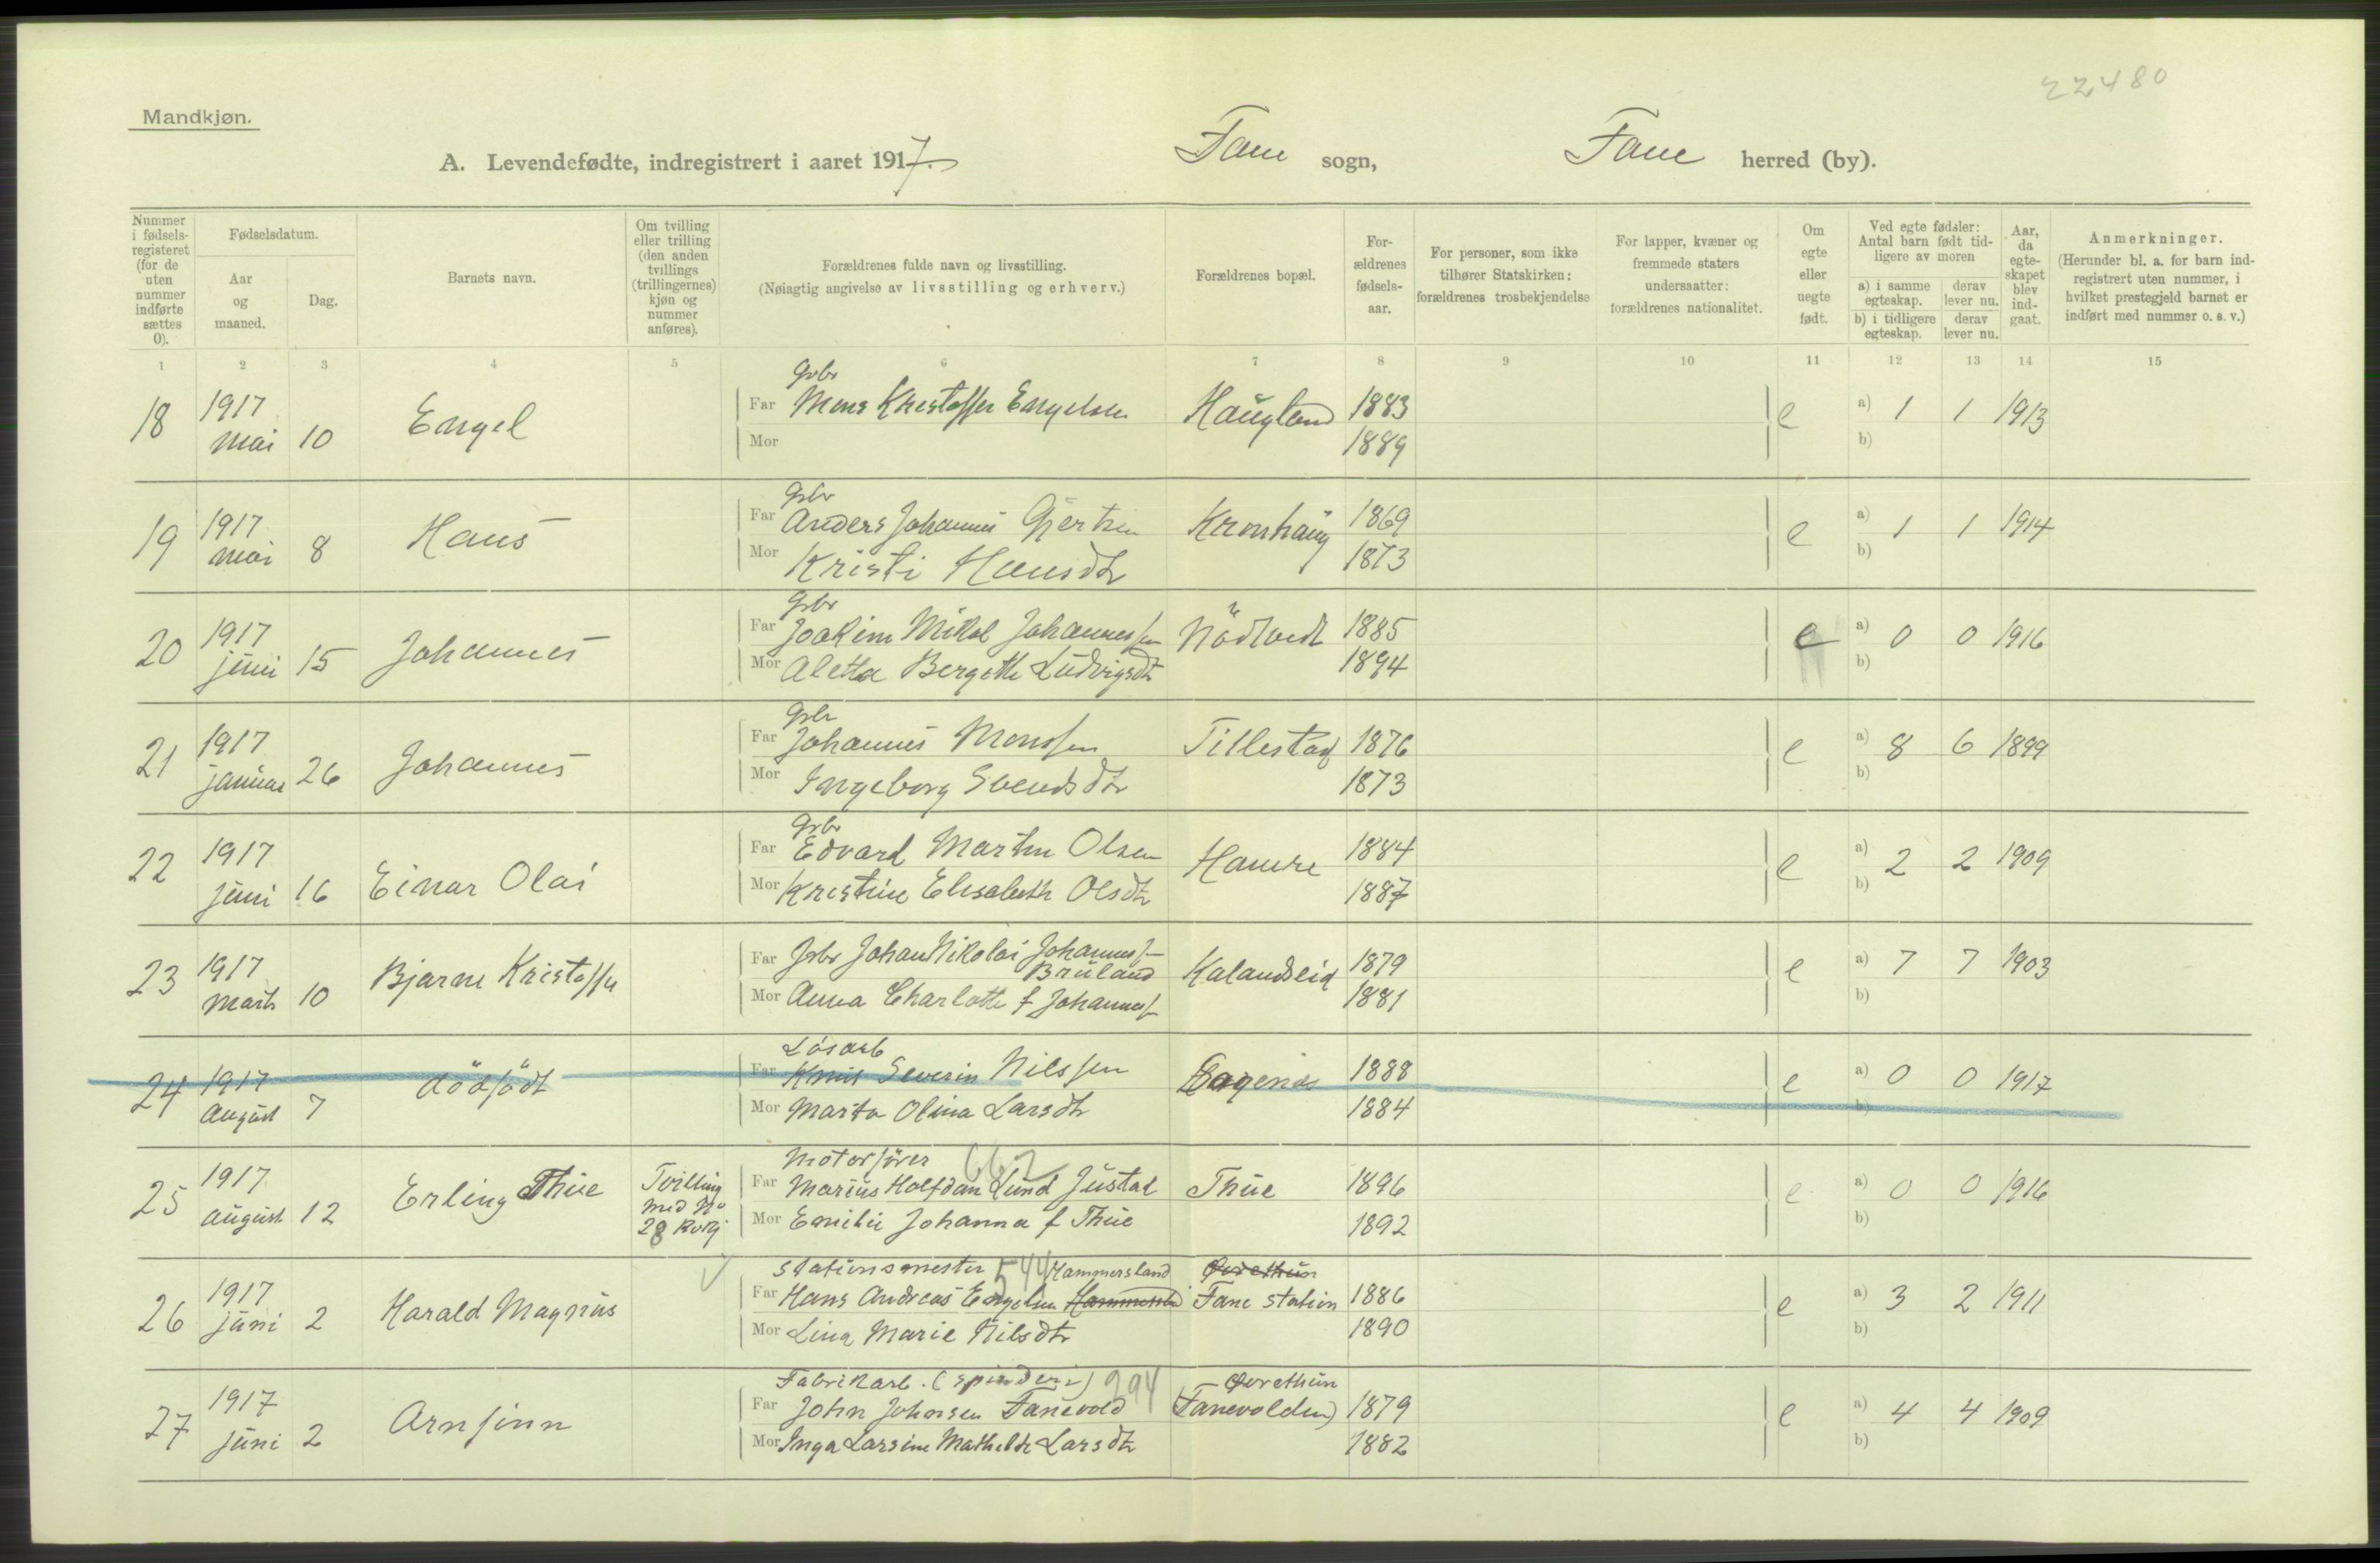 22480
Mandkjøn.
A. Levendefødte, indregistrert i aaret 1917. Fane sogn, Fane herred (by).
Nummer i fødsels-registeret (for de uten nummer indførte sættes 0).
Fødselsdatum.
Aar og maaned.
Dag.
Barnets navn.
Om tvilling eller trilling (den anden tvillings (trillingernes) kjøn og nummer anføres).
Forældrenes fulde navn og livsstilling.
(Nøiagtig angivelse av livsstilling og erhverv.)
Forældrenes bopæl.
For-ældrenes fødsels-aar.
For personer, som ikke tilhører Statskirken: forældrenes trosbekjendelse
For lapper, kvæner og fremmede staters undersaatter: forældrenes nationalitet.
Om egte eller uegte født.
Ved egte fødsler: Antal barn født tid-ligere av moren
a) i samme egteskap. derav lever nu.
b) i tidligere egteskap. derav lever nu.
Aar, da egte-skapet blev ind-gaat.
Anmerkninger.
(Herunder bl. a. for barn ind-registrert uten nummer, i hvilket prestegjeld barnet er indført med nummer o. s. v.)
1 2 3 4 5 6 7 8 9 10 11 12 13 14 15
Gbr
18 1917 mai 10 Engel Far Mons Kristoffer Engelsen Haugland 1883 e a) 1 1 1913
Mor 1889 b)
Gbr
19 1917 mai 8 Hans Far Anders Johannes Gjertsen Kromhaug 1869 e a) 1 1 1914
Mor Kristi Hansdtr 1873 b)
Gbr
20 1917 juni 15 Johannes Far Joakim Mikal Johannessen Nödtvedt 1885 e a) 0 0 1916
Mor Aletta Bergitte Ludvigsdtr 1894 b)
Gbr
21 1917 januar 26 Johannes Far Johannes Monssen Tillestad 1876 e a) 8 6 1899
Mor Ingeborg Svendsdtr 1873 b)
Gbr
22 1917 juni 16 Einar Olai Far Edvard Martin Olsen Hamre 1884 e a) 2 2 1909
Mor Kristine Elisabeth Olsdtr 1887 b)
23 1917 marts 10 Bjarne Kristoffer Far Gbr Johan Nikolai Johannessen Bruland Kalandseid 1879 e a) 7 7 1903
Mor Anna Charlotte f Johannessen 1881 b)
Lösarb
24 1917 august 7 dödfödt Far Knut Severin Nilssen 1888 e a) 0 0 1917
Mor Marta Olina Larsdtr 1884 b)
Motorförer 662
25 1917 august 12 Erling Thue Tvilling med No 28 kvkj Far Marius Halfdan Lund Justad Thue 1896 e a) 0 0 1916
Mor Emilie Johanna f Thue 1892 b)
Stationsmester 544 Hammersland Øvrethun
26 1917 juni 2 Harald Magnus Far Hans Andreas Engelsen Hammersland Fane station 1886 e a) 3 2 1911
Mor Lina Marie Nilsdtr 1890 b)
Fabrikarb. (spinderi) 294 Øvrethun
27 1917 juni 2 Arnfinn Far John Johnsen Fanevold (Fanevolden) 1879 e a) 4 4 1909
Mor Inga Larsine Mathilde Larsdtr 1882 b)